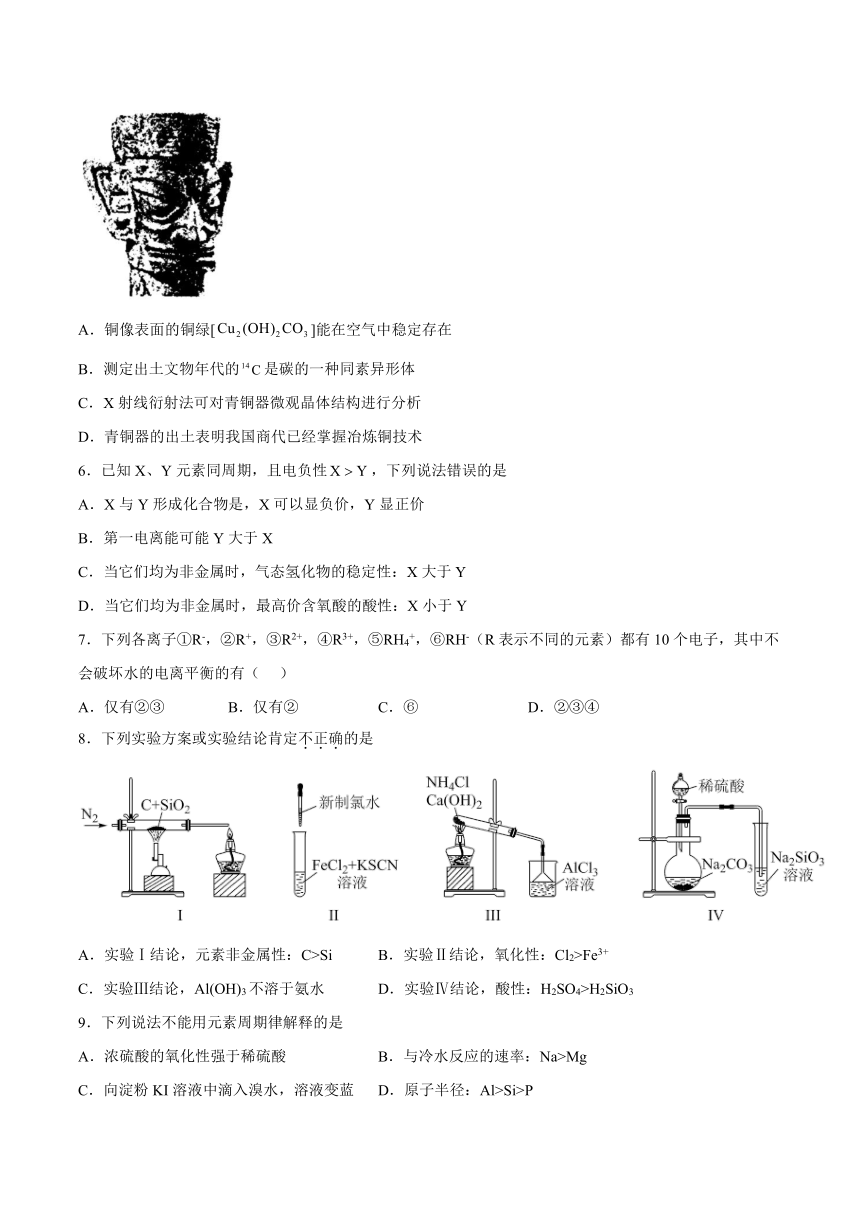 A．铜像表面的铜绿[Cu₂(OH)₂CO₃]能在空气中稳定存在
B．测定出土文物年代的¹⁴C是碳的一种同素异形体
C．X 射线衍射法可对青铜器微观晶体结构进行分析
D．青铜器的出土表明我国商代已经掌握冶炼铜技术
6．已知 X、Y 元素同周期，且电负性 X > Y，下列说法错误的是
A．X 与 Y 形成化合物是，X 可以显负价，Y 显正价
B．第一电离能可能 Y 大于 X
C．当它们均为非金属时，气态氢化物的稳定性：X 大于 Y
D．当它们均为非金属时，最高价含氧酸的酸性：X 小于 Y
7．下列各离子①R⁻，②R⁺，③R²⁺，④R³⁺，⑤RH₄⁺，⑥RH⁻（R 表示不同的元素）都有 10 个电子，其中不
会破坏水的电离平衡的有（ ）
A．仅有②③ B．仅有② C．⑥ D．②③④
8．下列实验方案或实验结论肯定不正确的是
N₂ C+SiO₂ 
Ⅰ
新制氯水
FeCl₂+KSCN
溶液
Ⅱ
NH₄Cl
Ca(OH)₂
AlCl₃
溶液
Ⅲ
稀硫酸
Na₂CO₃
Na₂SiO₃
溶液
Ⅳ
A．实验Ⅰ结论，元素非金属性：C>Si B．实验Ⅱ结论，氧化性：Cl₂>Fe³⁺
C．实验Ⅲ结论，Al(OH)₃ 不溶于氨水 D．实验Ⅳ结论，酸性：H₂SO₄>H₂SiO₃
9．下列说法不能用元素周期律解释的是
A．浓硫酸的氧化性强于稀硫酸 B．与冷水反应的速率：Na>Mg
C．向淀粉 KI 溶液中滴入溴水，溶液变蓝 D．原子半径：Al>Si>P